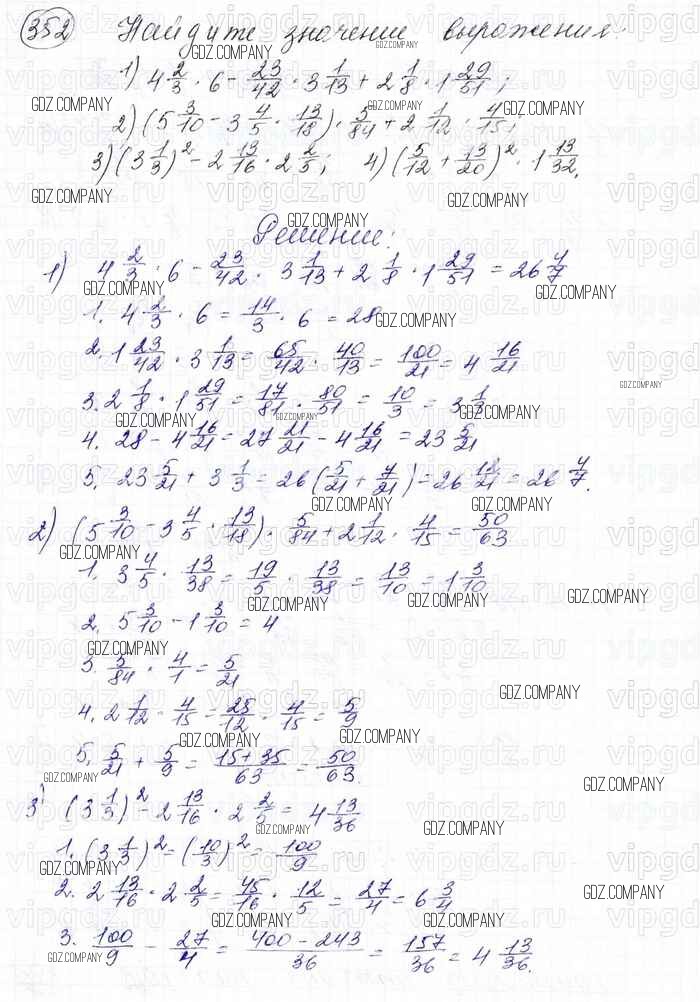 352 Найдите значение выражения:
1) 4 2/3 · 6 − 23/42 · 3 1/13 + 2 1/8 · 1 29/51;
2) (5 3/10 − 3 4/5 · 13/18) · 5/84 + 2 1/12 · 4/15;
3) (3 1/3)² − 2 13/16 · 2 2/5; 4) (5/12 + 13/20)² · 1 13/32.
Решение:
1) 4 2/3 · 6 − 23/42 · 3 1/13 + 2 1/8 · 1 29/51 = 26 4/7
1. 4 2/3 · 6 = 14/3 · 6 = 28
2. 1 23/42 · 3 1/13 = 65/42 · 40/13 = 100/21 = 4 16/21
3. 2 1/8 · 1 29/51 = 17/81 · 80/51 = 10/3 = 3 1/3
4. 28 − 4 16/21 = 27 21/21 − 4 16/21 = 23 5/21
5. 23 5/21 + 3 1/3 = 26 (5/21 + 7/21) = 26 12/21 = 26 4/7.
2) (5 3/10 − 3 4/5 · 13/18) · 5/84 + 2 1/12 · 4/15 = 50/63
1. 3 4/5 · 13/38 = 19/5 · 13/38 = 13/10 = 1 3/10
2. 5 3/10 − 1 3/10 = 4
3. 5/84 · 4/1 = 5/21
4. 2 1/12 · 4/15 = 25/12 · 4/15 = 5/9
5. 5/21 + 5/9 = 15+35/63 = 50/63.
3) (3 1/3)² − 2 13/16 · 2 2/5 = 4 13/36
1. (3 1/3)² = (10/3)² = 100/9
2. 2 13/16 · 2 2/5 = 45/16 · 12/5 = 27/4 = 6 3/4
3. 100/9 − 27/4 = 400 − 243/36 = 157/36 = 4 13/36.
GDZ.COMPANY
vipgdz.ru